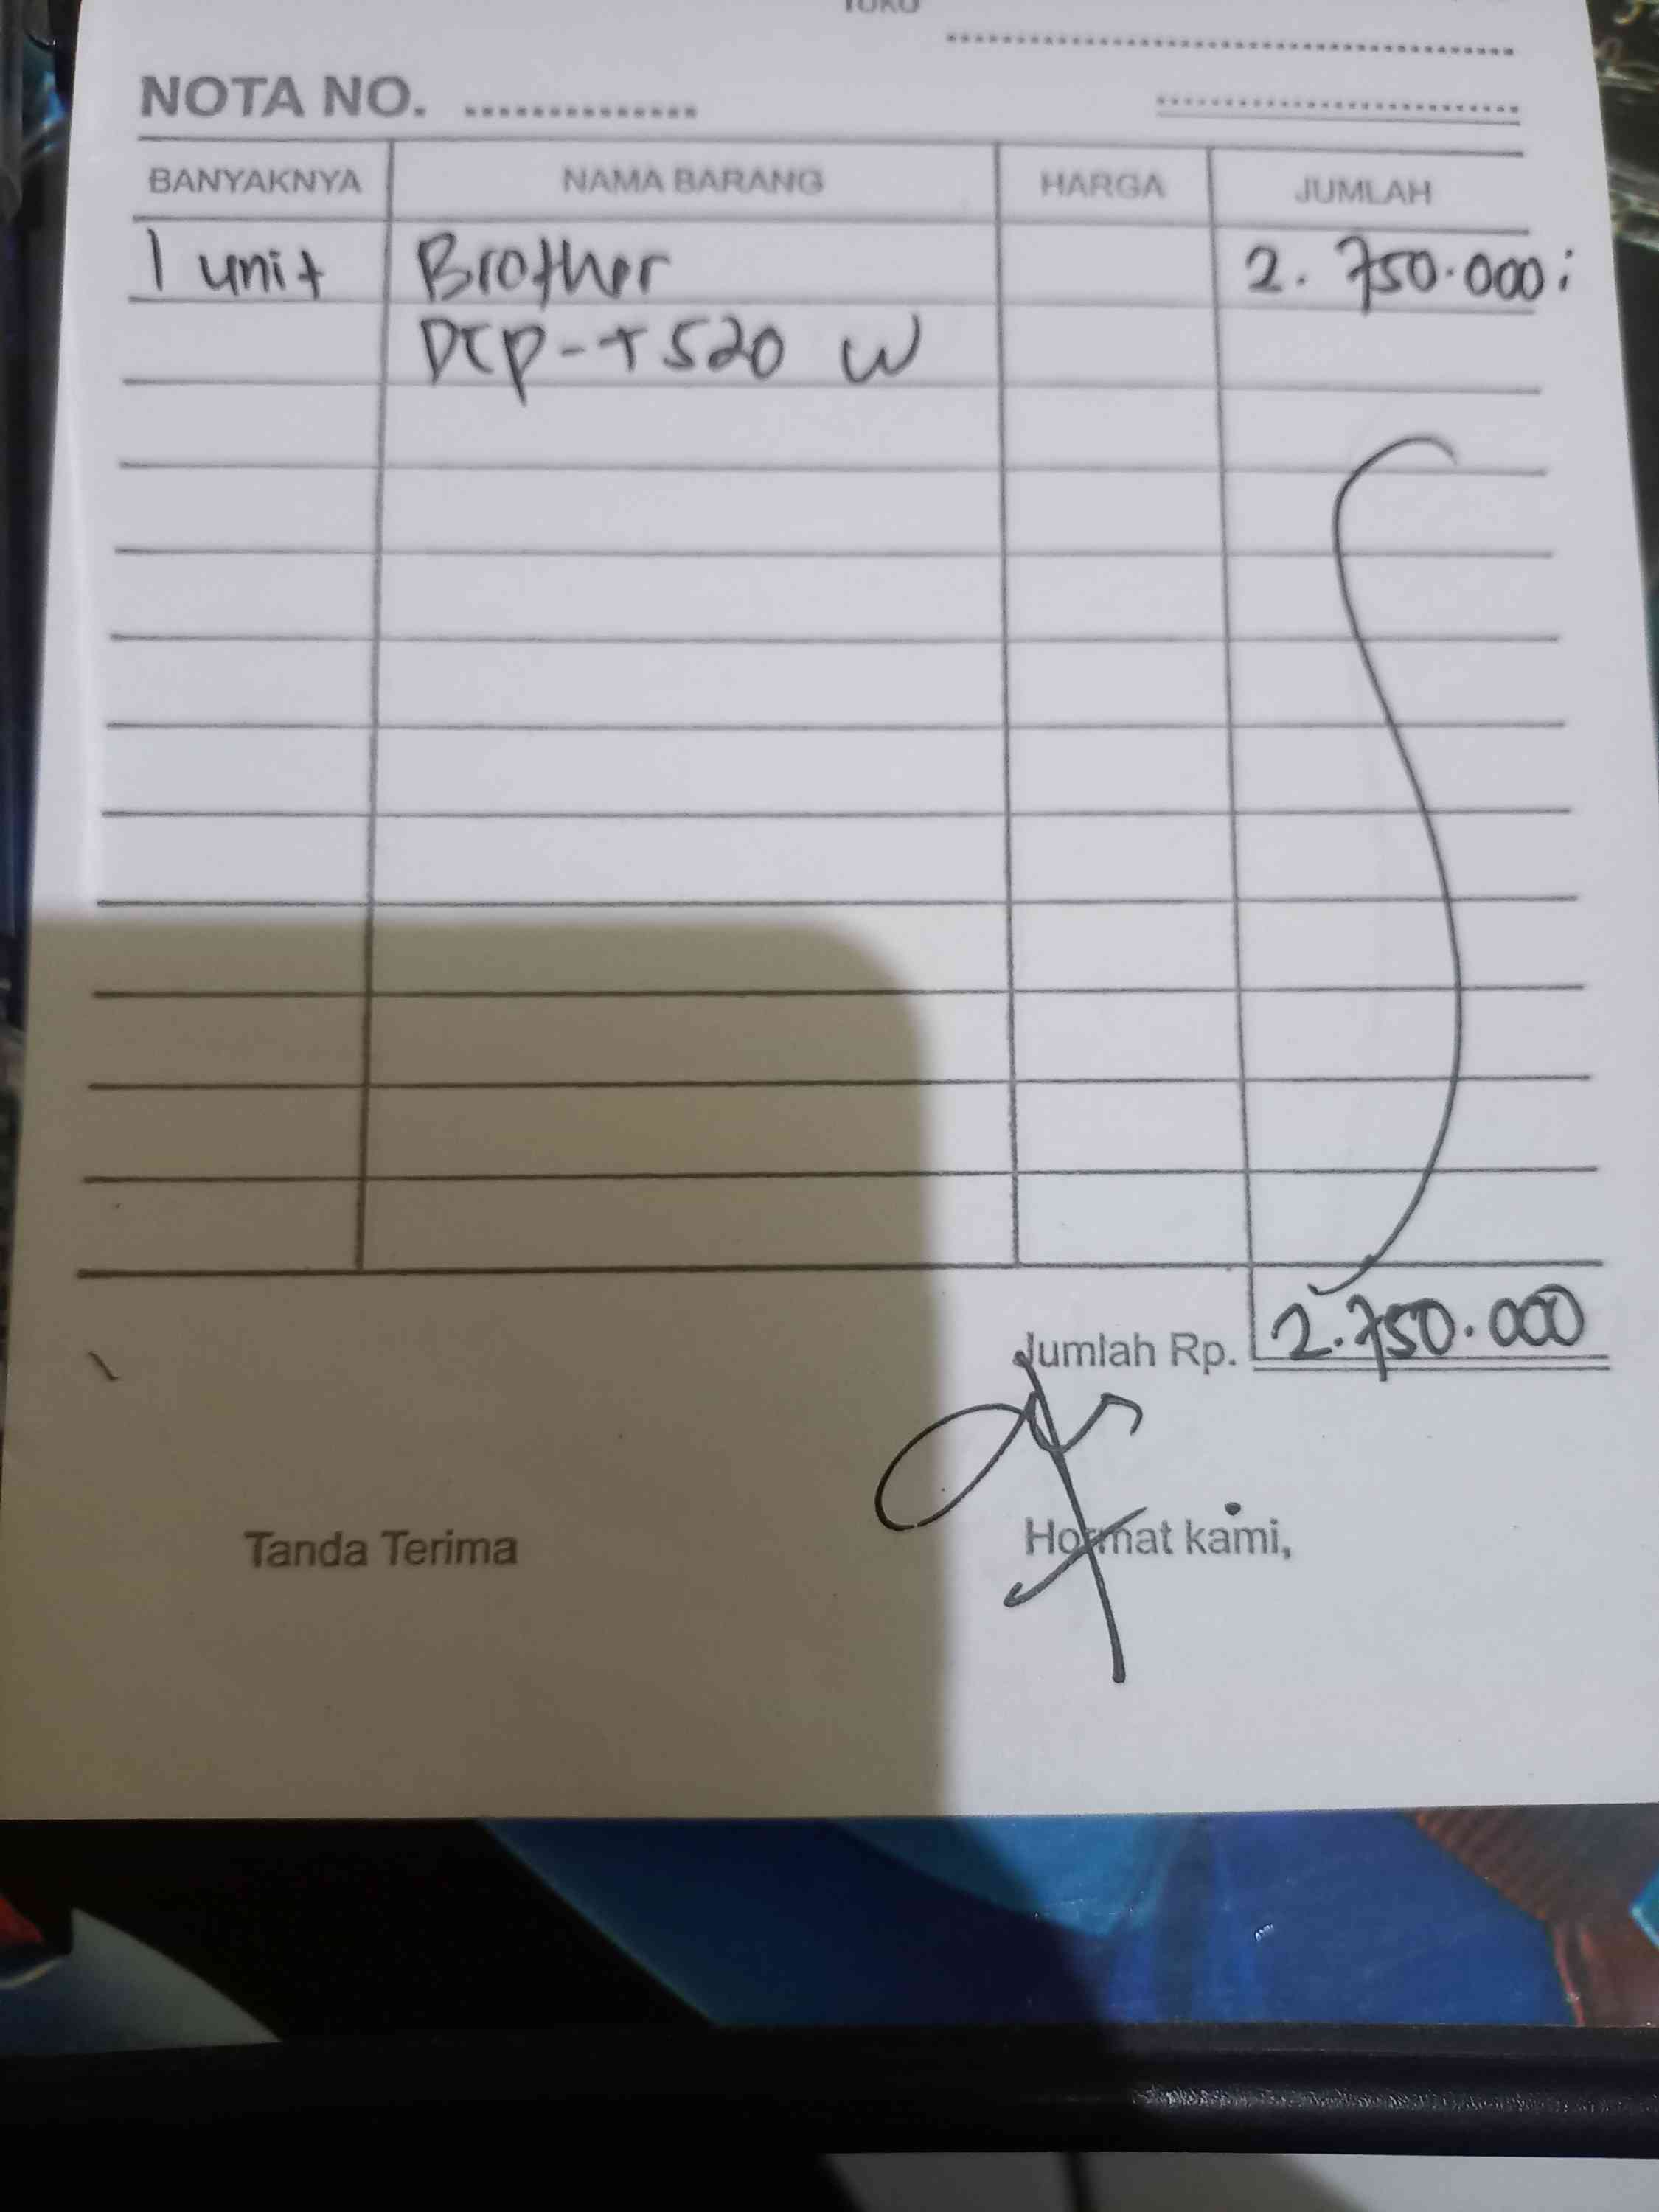 TOKO
NOTA NO.
BANYAKNYA NAMA BARANG HARGA JUMLAH
1 unit Brother 2.750.000
DCP-T520 W
Jumlah Rp. 2.750.000
Tanda Terima Hormat kami,